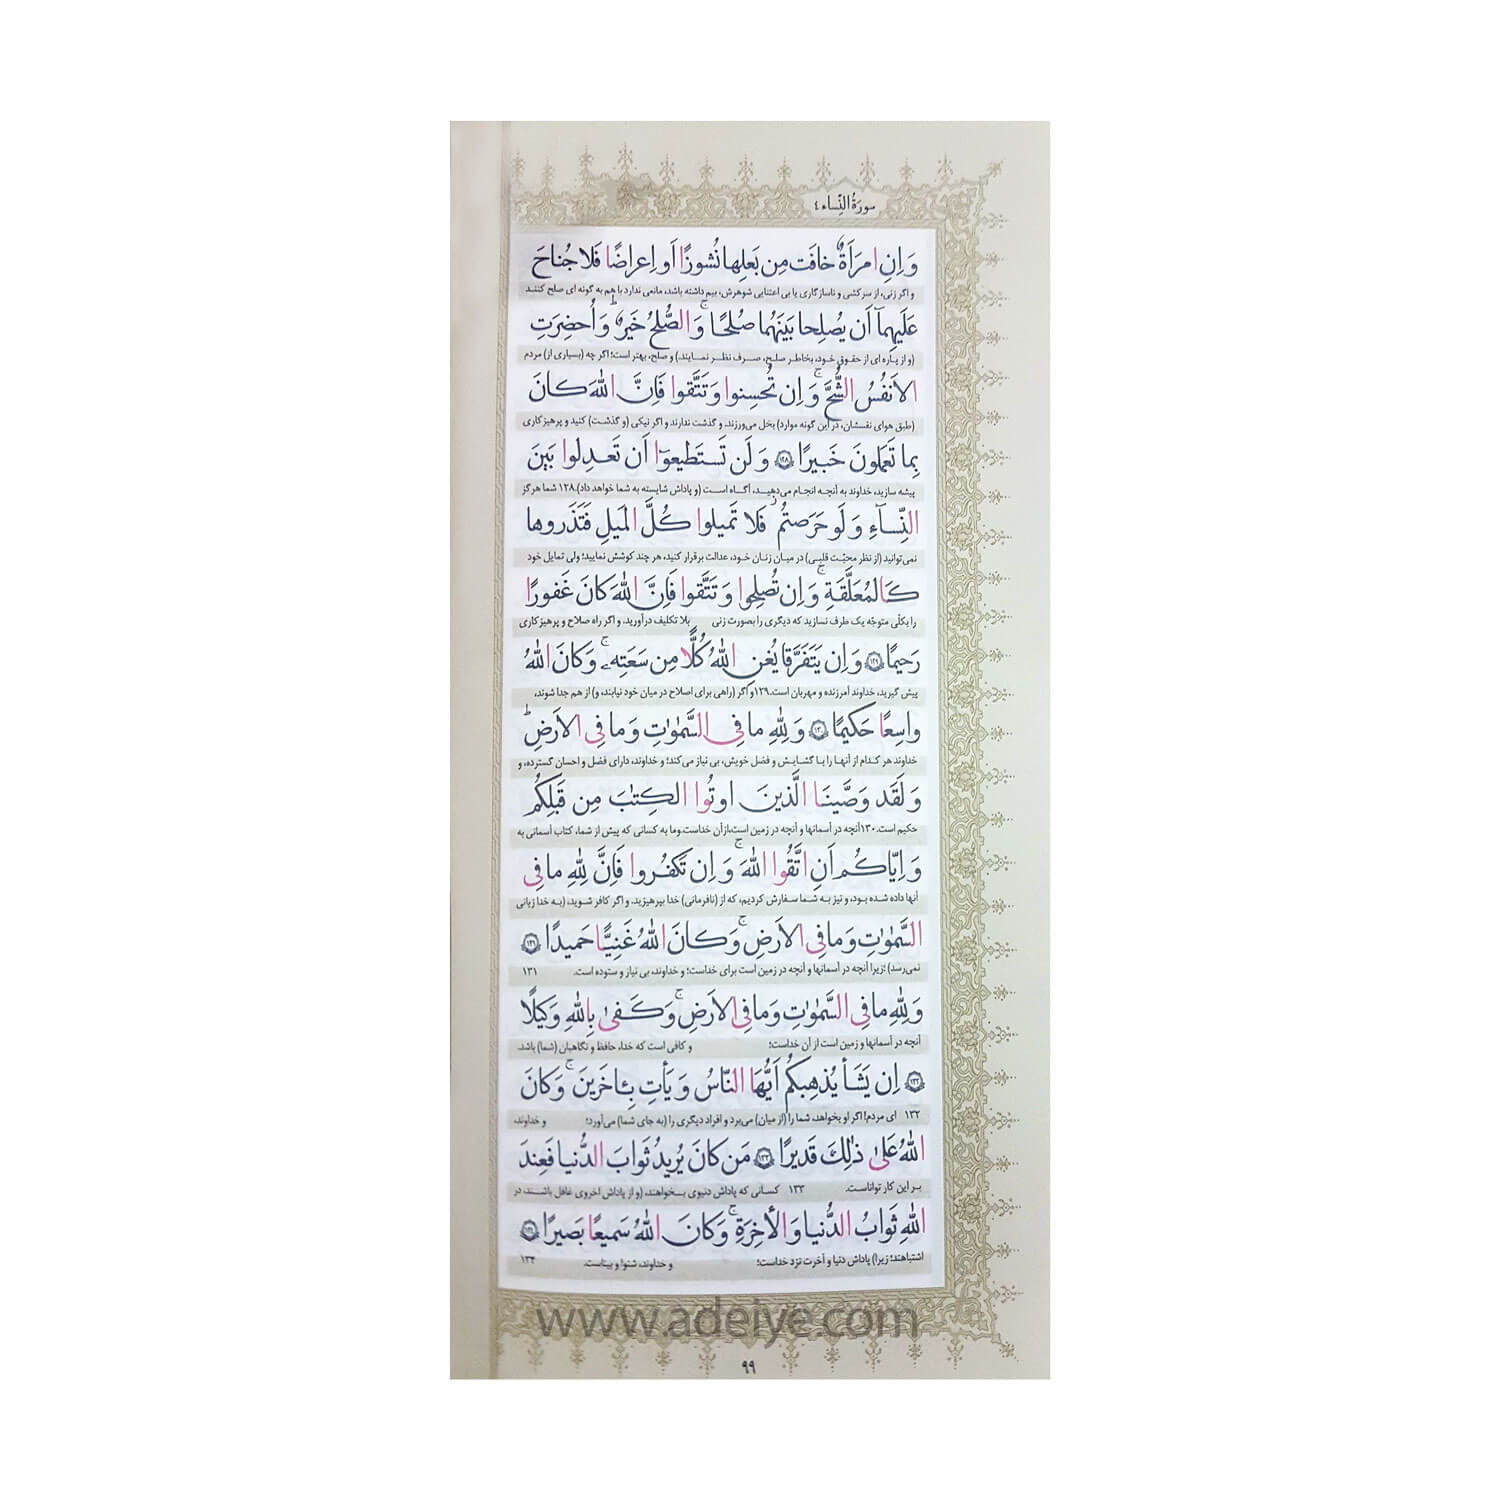 سورة النِّساء ٤
وَ اِنِ امرَأَةٌ خافَت مِن بَعلِها نُشوزًا اَو اِعراضًا فَلا جُناحَ
و اگر زنی، از سرکشی و ناسازگاری یا بی اعتنایی شوهرش، بیم داشته باشد، مانعی ندارد با هم به گونه ای صلح کنند
عَلَيهِمآ اَن يُصلِحا بَينَهُما صُلحًا ۚ وَ الصُّلحُ خَيرٌ ۗ وَ اُحضِرَتِ
(و از پاره ای از حقوق خود، بخاطر صلح، صرف نظر نمایند.) و صلح، بهتر است؛ اگر چه (بسیاری از) مردم
الاَنفُسُ الشُّحَّ ۚ وَ اِن تُحسِنوا وَ تَتَّقوا فَاِنَّ اللّٰهَ كانَ
(طبق هوای نفسشان، در این گونه موارد) بخل می‌ورزند. و گذشت ندارند و اگر نیکی (و گذشت) کنید و پرهیزکاری
بِما تَعمَلونَ خَبيرًا ﴿١٢٨﴾ وَ لَن تَستَطيعوٓا اَن تَعدِلوا بَينَ
پیشه سازید، خداوند به آنچه انجام می‌دهید، آگاه است (و پاداش شایسته به شما خواهد داد).۱۲۸ شما هرگز
النِّسآءِ وَ لَو حَرَصتُم ۖ فَلا تَميلوا كُلَّ المَيلِ فَتَذَروها
نمی‌توانید (از نظر محبّت قلبی) در میان زنان خود، عدالت برقرار کنید، هر چند کوشش نمایید؛ ولی تمایل خود
كَالمُعَلَّقَةِ ۚ وَ اِن تُصلِحوا وَ تَتَّقوا فَاِنَّ اللّٰهَ كانَ غَفورًا
را بکلّی متوجّه یک طرف نسازید که دیگری را بصورت زنی بلا تکلیف درآورید. و اگر راه صلاح و پرهیزکاری
رَحيمًا ﴿١٢٩﴾ وَ اِن يَتَفَرَّقا يُغنِ اللّٰهُ كُلًّا مِن سَعَتِهٖ ۚ وَ كانَ اللّٰهُ
پیش گیرید، خداوند آمرزنده و مهربان است.۱۲۹و اگر (راهی برای اصلاح در میان خود نیابند، و) از هم جدا شوند،
واسِعًا حَكيمًا ﴿١٣٠﴾ وَ لِلّٰهِ ما فِى السَّمٰوٰتِ وَ ما فِى الاَرضِ ۗ
خداوند هر کدام از آنها را با گشایش و فضل خویش، بی نیاز می‌کند؛ و خداوند، دارای فضل و احسان گسترده، و
وَ لَقَد وَصَّينَا الَّذينَ اوتُوا الكِتٰبَ مِن قَبلِكُم
حکیم است.۱۳۰آنچه در آسمانها و آنچه در زمین است،ازآن خداست.وما به کسانی که پیش از شما، کتاب آسمانی به
وَ اِيّاكُم اَنِ اتَّقُوا اللّٰهَ ۚ وَ اِن تَكفُروا فَاِنَّ لِلّٰهِ ما فِى
آنها داده شده بود، و نیز به شما سفارش کردیم، که از (نافرمانی) خدا بپرهیزید. و اگر کافر شوید، (به خدا زیانی
السَّمٰوٰتِ وَ ما فِى الاَرضِ ۚ وَ كانَ اللّٰهُ غَنِيًّا حَميدًا ﴿١٣١﴾
نمی‌رسد) ؛زیرا آنچه در آسمانها و آنچه در زمین است برای خداست؛ و خداوند، بی نیاز و ستوده است. ۱۳۱
وَ لِلّٰهِ ما فِى السَّمٰوٰتِ وَ ما فِى الاَرضِ ۚ وَ كَفىٰ بِاللّٰهِ وَكيلًا
آنچه در آسمانها و زمین است از آن خداست؛ و کافی است که خدا، حافظ و نگاهبان (شما) باشد.
﴿١٣٢﴾ اِن يَشَأ يُذهِبكُم اَيُّهَا النّاسُ وَ يَأتِ بِـٔاخَرينَ ۚ وَ كانَ
۱۳۲ ای مردم! اگر او بخواهد، شما را (از میان) می‌برد و افراد دیگری را (به جای شما) می‌آورد؛ و خداوند،
اللّٰهُ عَلىٰ ذٰلِكَ قَديرًا ﴿١٣٣﴾ مَن كانَ يُريدُ ثَوابَ الدُّنيا فَعِندَ
بر این کار تواناست. ۱۳۳ کسانی که پاداش دنیوی بخواهند، (و از پاداش اخروی غافل باشند، در
اللّٰهِ ثَوابُ الدُّنيا وَ الأخِرَةِ ۚ وَ كانَ اللّٰهُ سَميعًا بَصيرًا ﴿١٣٤﴾
اشتباهند؛ زیرا) پاداش دنیا و آخرت نزد خداست؛ و خداوند، شنوا و بیناست. ۱۳۴
www.adeiye.com
۹۹